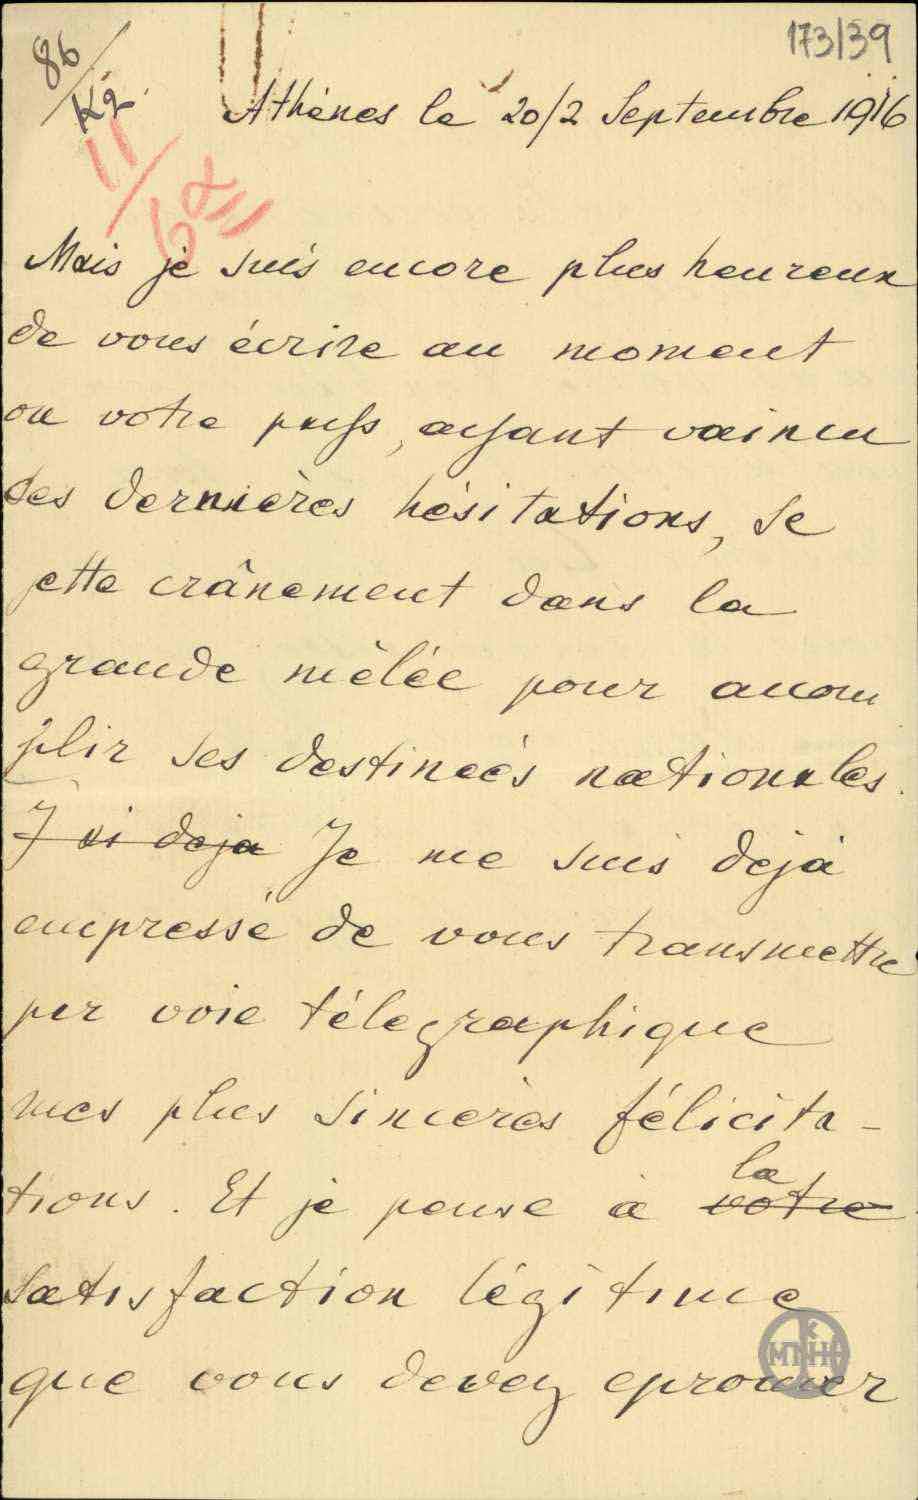 173/39
86/
Κ2.
11/
Athènes le 20/2 Septembre 1916
Mais je suis encore plus heureux
de vous écrire au moment
ou votre pays, ayant vaincu
ses dernières hésitations, se
jette crânement dans la
grande mêlée pour accom
plir ses destineés nationales.
J'ai deja Je me suis dejà
empressé de vous transmettre
par voie télegraphique
mes plus sincères félicita-
tions. Et je pense à votre la
satisfaction légitime
que vous devez eprouver
ΜΝΗΚ